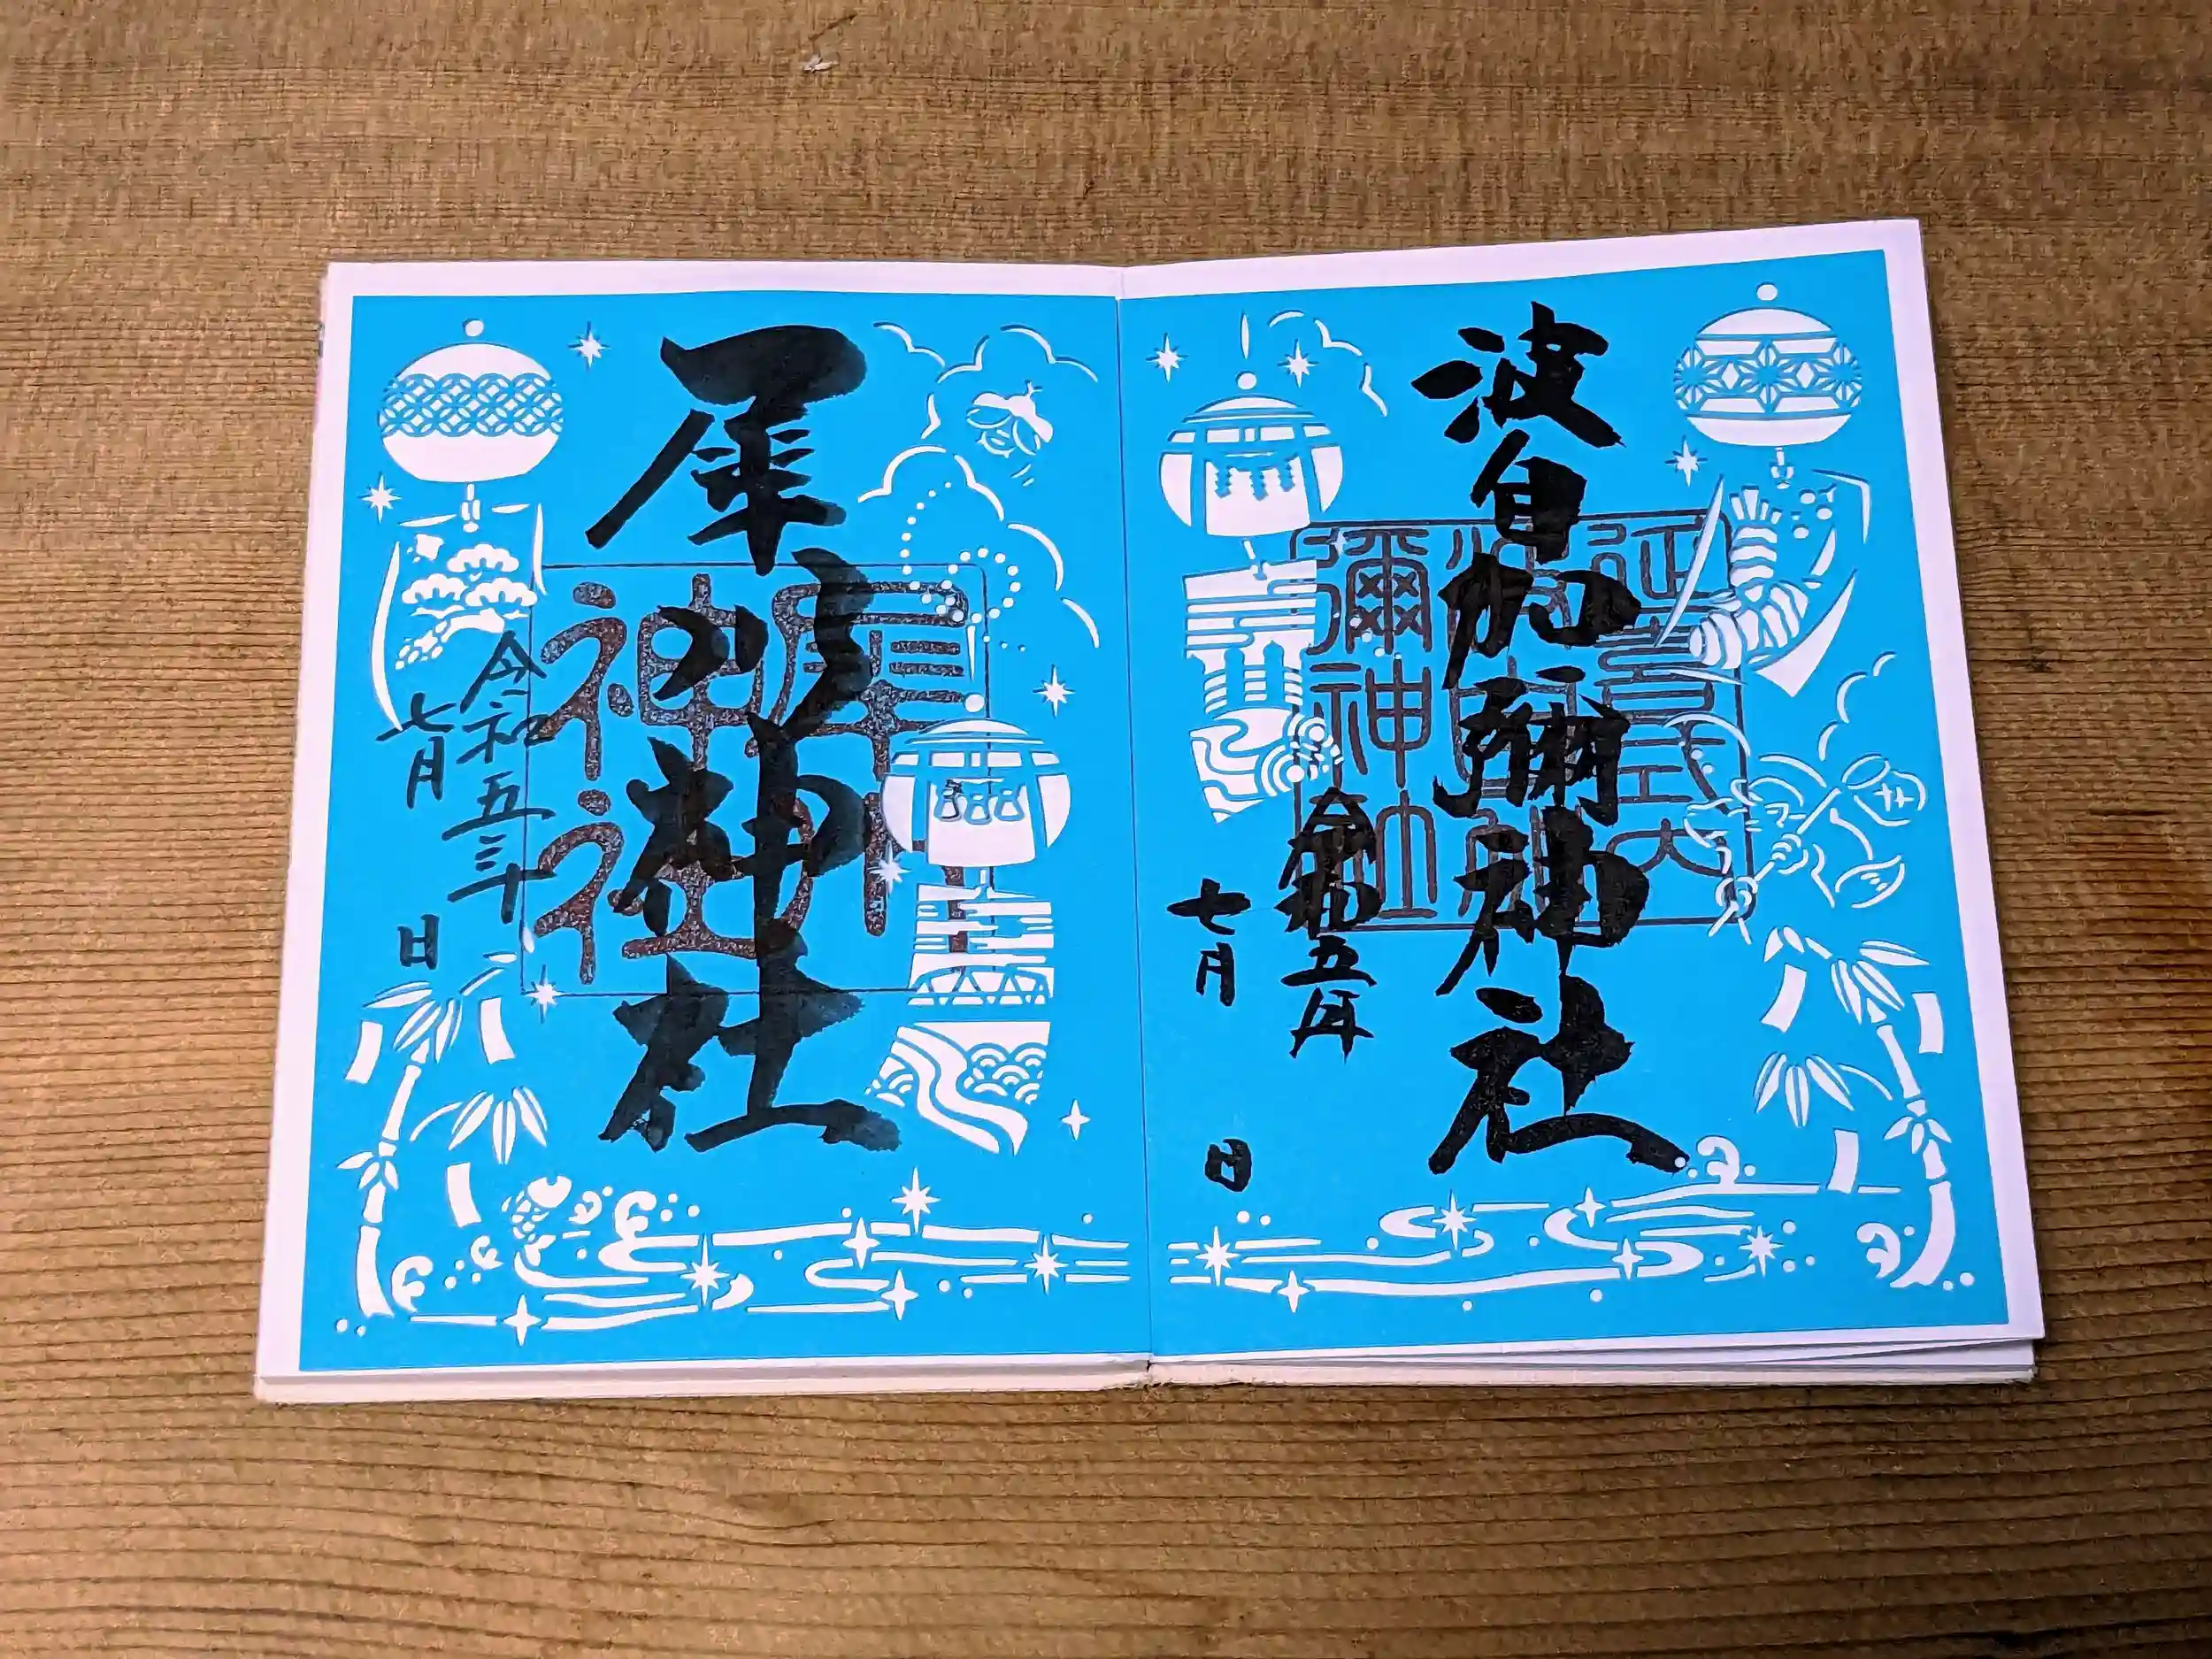 波自加彌神社
延喜式内
彌神社
令和五年
七月 日
犀川神社
犀川
神社
令和五年
七月 日